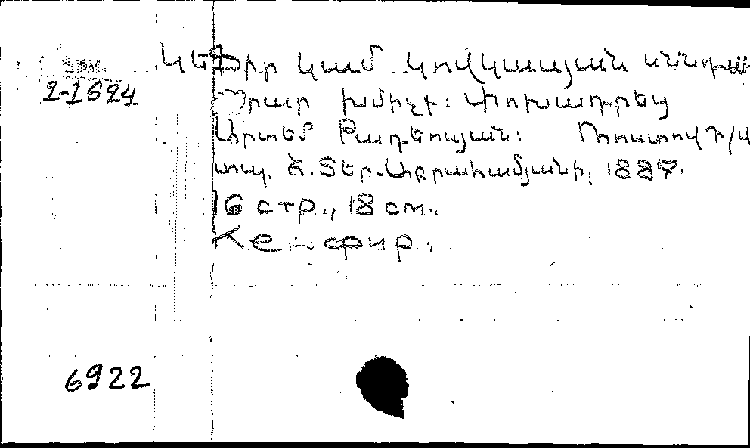 2-1624
Կեֆիր կամ կովկասյան
Պրար խմիչի: Փոխադրեց
Արտեմ Բաղեոսյան: Ռոստով Դ/Ա
տպ. Հ.Տեր-Աբրահամյանի, 1887.
16 стр., 18 см.
Кенфир.
6922